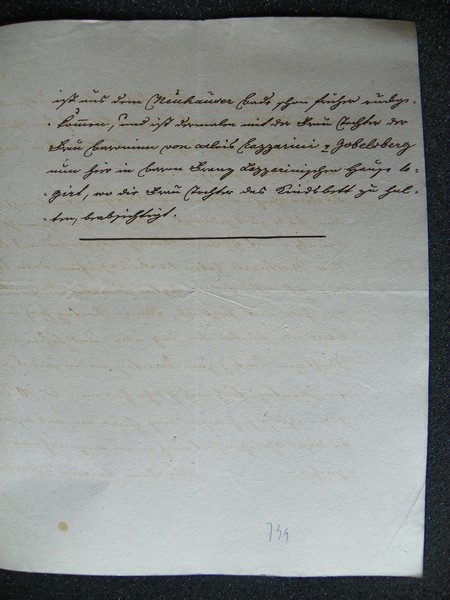 ist aus dem Neuhauser Bade schon früher rückge-
-kommen, und ist dermalen mit der Frau Tochter der
Frau Baronin von Alois Lazzarini z Gobelsberg
nun hier in baron Franz Lazzarinischen Hause lo-
-girt, wo die Frau Tochter das Kindsbett zu hal-
-ten, beabsichtigt.